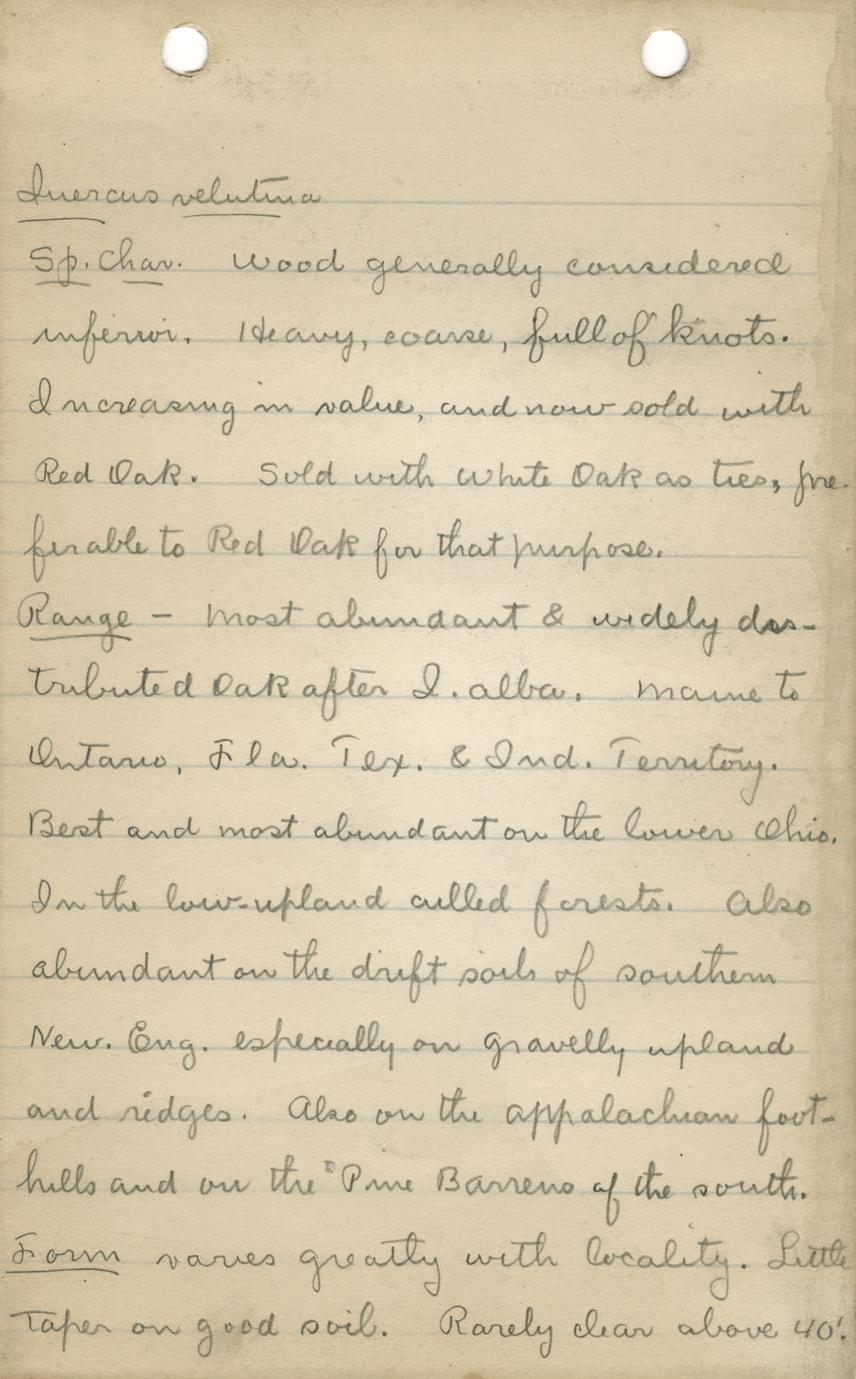 Quercus velutina
Sp. Char. Wood generally considered
inferior. Heavy, coarse, full of knots.
Increasing in value, and now sold with
Red Oak. Sold with White Oak as ties, pre-
ferable to Red Oak for that purpose.
Range – Most abundant & widely dis-
tributed Oak after Q. alba. Maine to
Ontario, Fla. Tex. & Ind. Territory.
Best and most abundant on the lower Ohio.
In the low-upland culled forests. Also
abundant on the drift soils of southern
New. Eng. especially on gravelly upland
and ridges. Also on the appalachian foot-
hills and on the Pine Barrens of the south.
Form varies greatly with locality. Little
taper on good soil. Rarely clear above 40'.